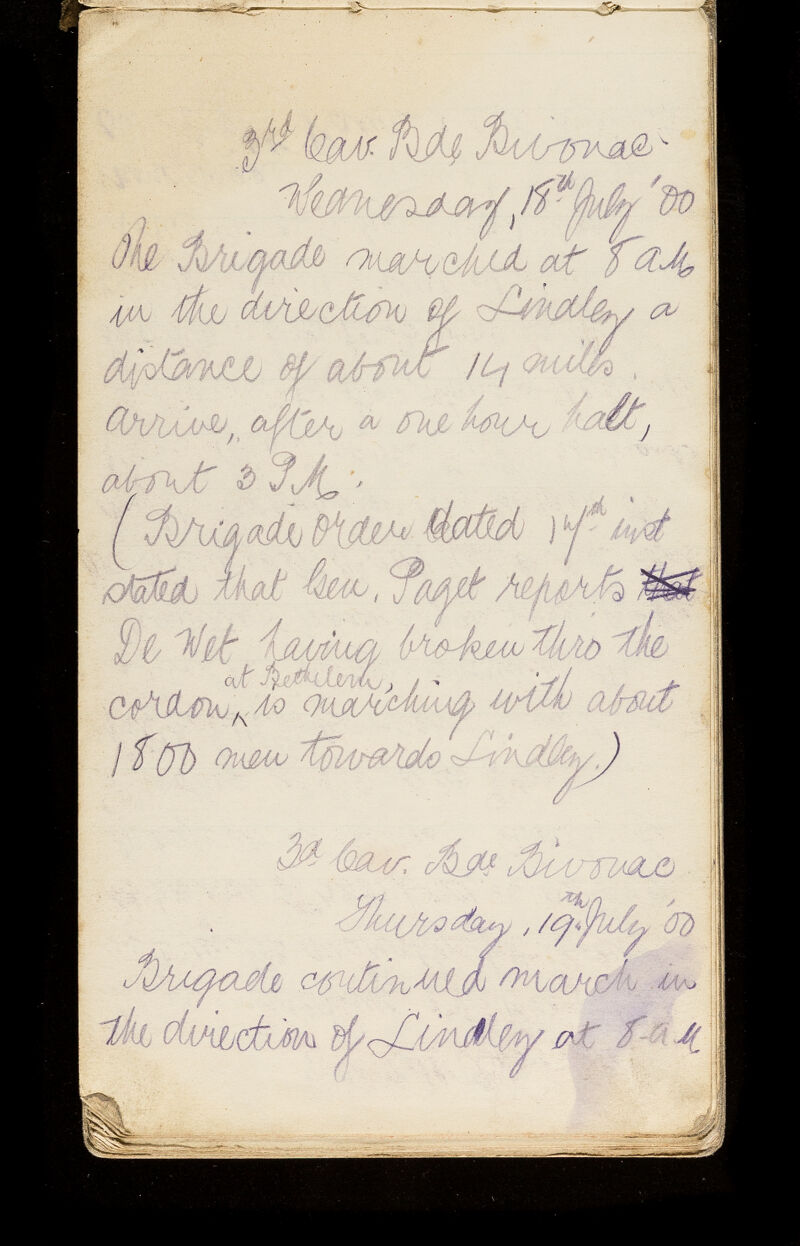 3rd Cav. Bde Bivouac.
Wednesday, 18th July '00
The Brigade marched at 8 AM
in the direction of Lindley a
distance of about 14 miles.
Arrive, after a one hour halt,
about 3 PM.
(Brigade Order dated 17th inst
stated that Gen. Paget reports that
De Wet having broken thro the
at Bethlem,
cordon, ^ is marching with about
1800 men towards Lindley.)
3d Cav. Bde Bivouac
Thursday, 19th July '00
Brigade continued march in
the direction of Lindley at 8-AM